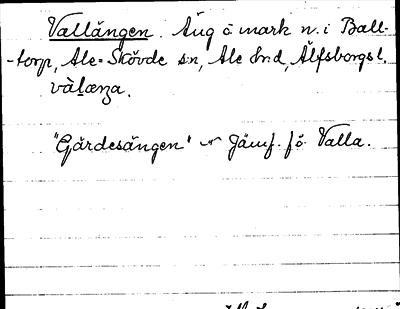 Vallängen. Äng å mark n. i Ball-
-torp, Ale-Skövde sn, Ale hrd, Älfsborgs l.
vàlæŋa.
"Gärdesängen" Jämf. fö. Valla.